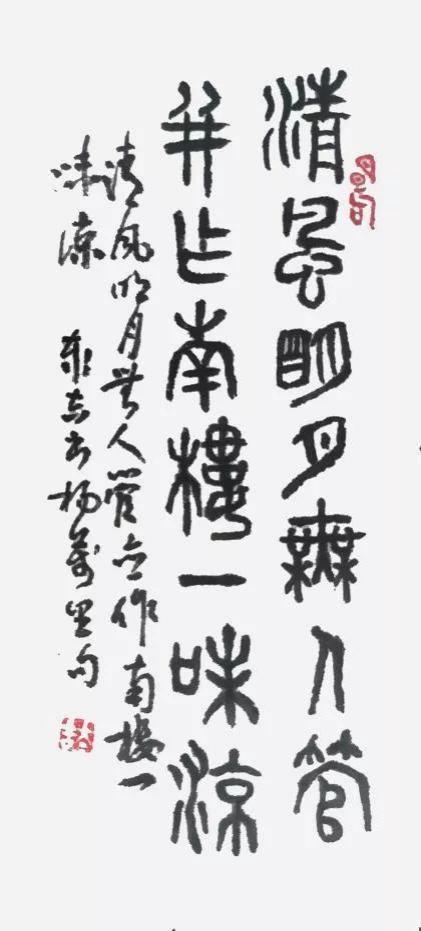 清風明月無人管
并乍南樓一味涼
清风明月無人管并作南樓一
味凉 书杨萬里句